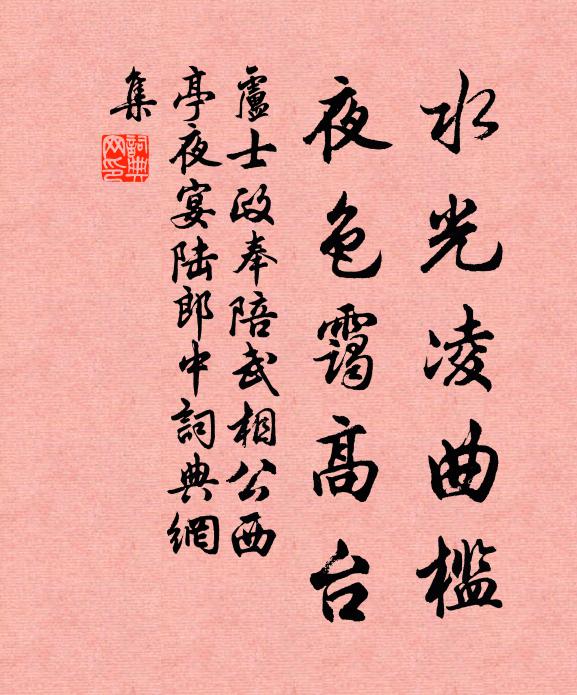 水光凌曲檻
夜色靄高台
盧士政奉陪武相公西
亭夜宴陆郎中詞典網
集
詞典網印